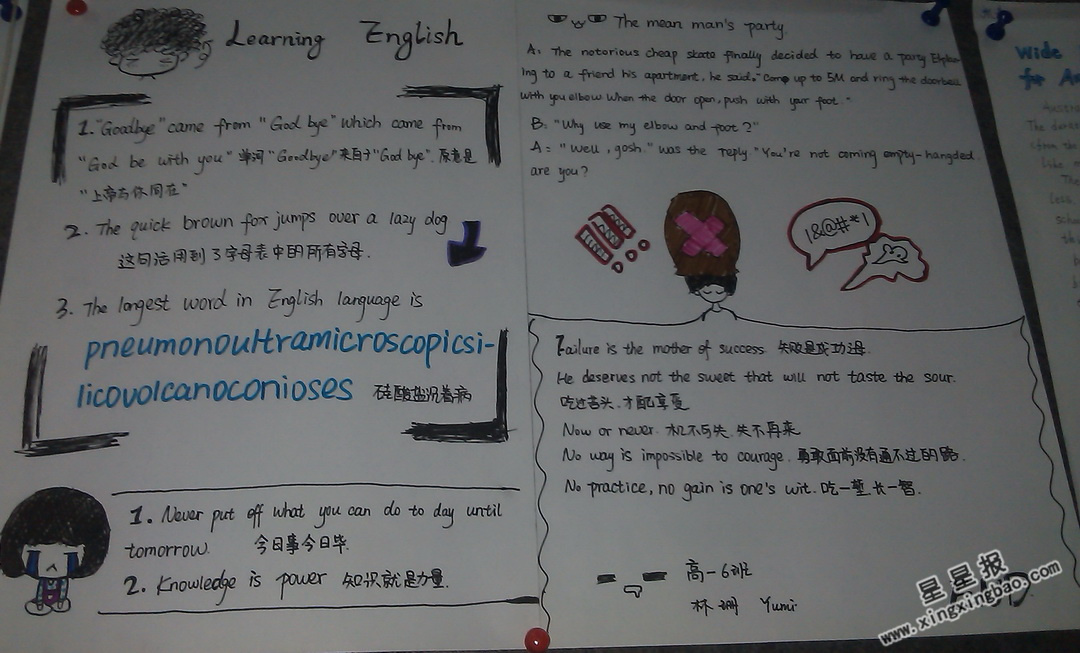 Learning English
1. "Goodbye" came from "God bye" which came from
"God be with you" 单词 "Goodbye" 来自于 "God bye". 原意是
"上帝与你同在"
2. The quick brown fox jumps over a lazy dog
这句话用到了字母表中的所有字母.
3. The longest word in English language is
pneumonoultramicroscopicsi-
licovolcanoconioses 硅酸盐沉着病
1. Never put off what you can do to day until
tomorrow. 今日事今日毕.
2. Knowledge is power 知识就是力量.
The mean man's party.
A: The notorious cheap skate finally decided to have a party
ing to a friend his apartment, he said. "Come up to 5M and ring the doorbell
with you elbow when the door open, push with your foot."
B: "Why use my elbow and foot?"
A: "Well, gosh." was the reply "You're not coming empty-hangded.
are you?
!&@#*!
Failure is the mother of success 失败是成功之母.
He deserves not the sweet that will not taste the sour.
吃过苦头.才配享受
Now or never. 机不可失.失不再来
No way is impossible to courage. 勇敢面前没有通不过的路.
No practice, no gain is one's wit. 吃一堑长一智.
高一6班
林珊 Yumi
wide
星星报
www.xingxingbao.com